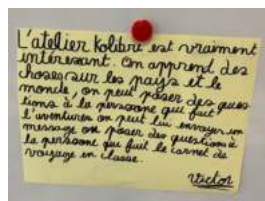 L'atelier Kolibre est vraiment
intéressant. On apprend des
choses sur les pays et le
monde, on peut poser des ques
tions à la personne qui fait
l'aventures on peut lui envoyer un
message on poser des questions à
la personne qui fait le carnet de
voyage en classe.
Victor